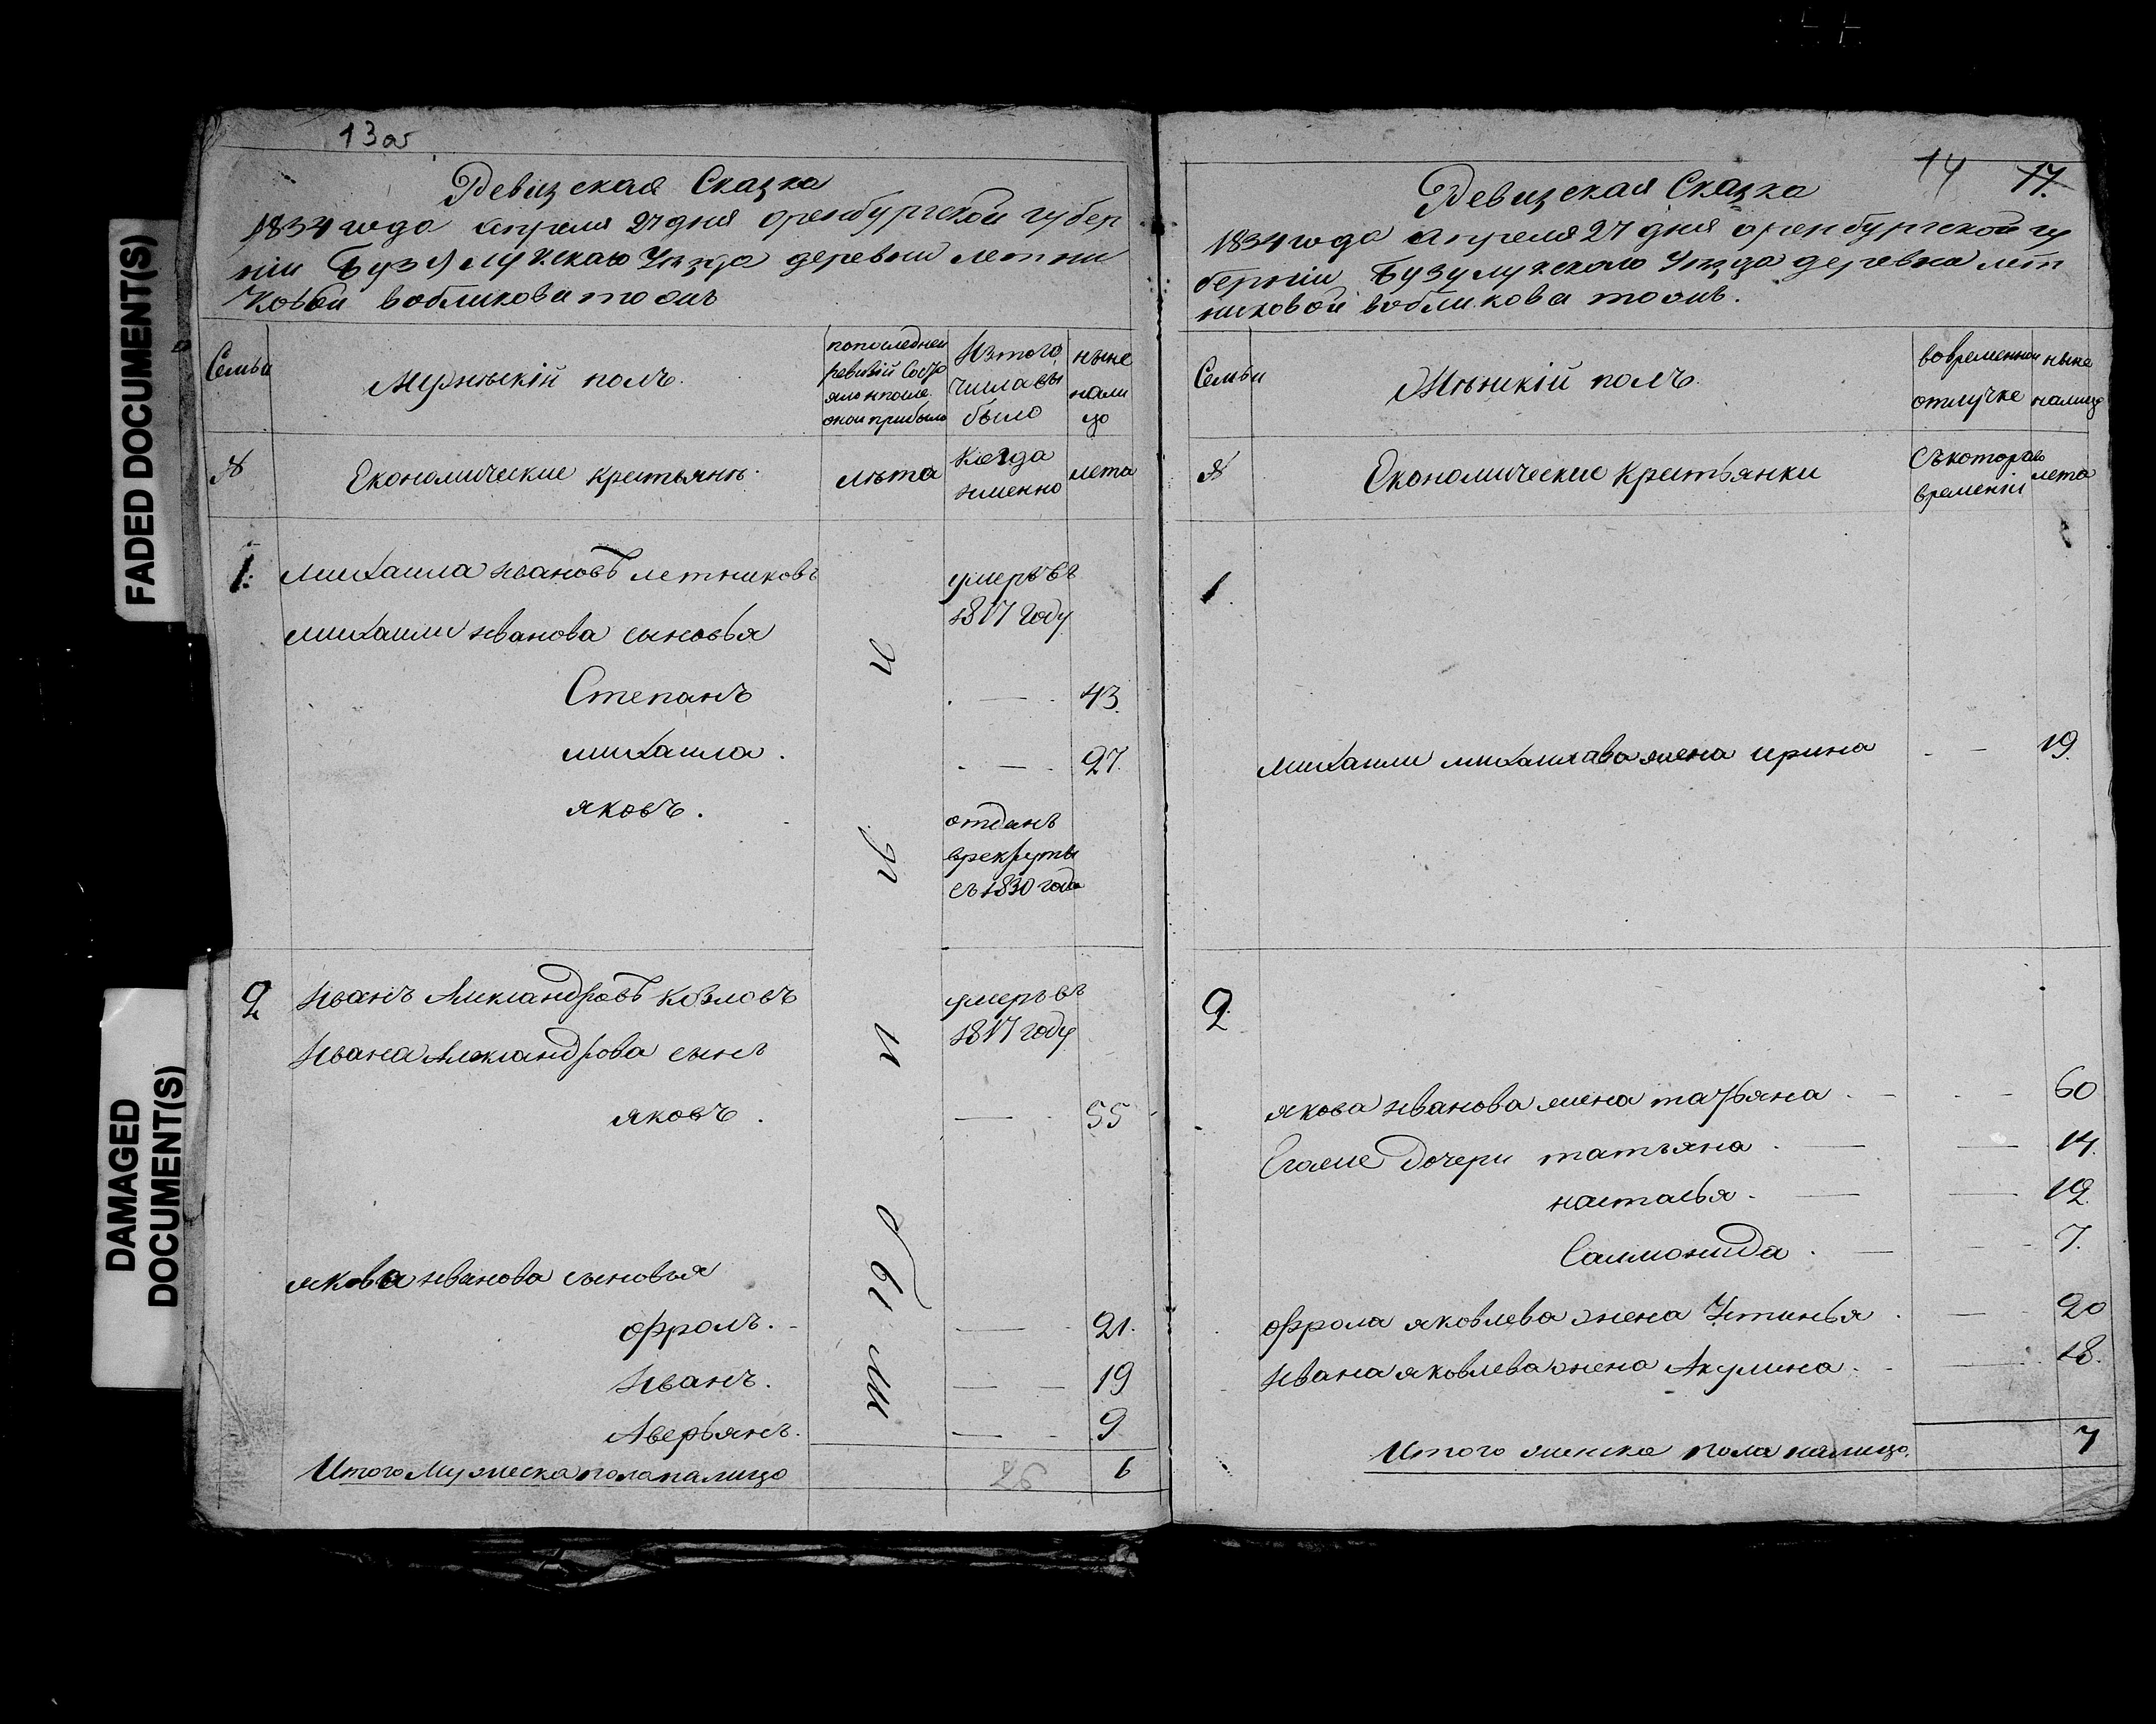 FADED DOCUMENT(S)
DAMAGED
DOCUMENT(S)
13об
Ревизская Сказка
1834 года апреля 27 дня оренбургской губер
нии Бузулукскаго Уезда деревни летни
ковой вобликова тожъ
Семьи
Мужескій полъ.
попоследней
ревизіи Состо
яло ипосле
оной прибыло
Изтого
числа вы
было
ныне
нали
цо
№
Економические крестьянъ.
лѣта
Когда
именно
лета
1.
михаила ивановъ летниковъ
умеръ въ
1817 году
михаилы иванова сыновья
Степанъ
43.
михаила.
27.
яковъ.
отданъ
врекруты
съ 1830 года
2
Иванъ Александровъ козловъ
умеръ въ
1817 году
Ивана Александрова сынъ
яковъ.
55
якова иванова сыновья
Фролъ.
21.
Иванъ.
19
Аверьянъ.
9
Итого Мужеска пола налицо
26
6
14
17.
Ревизская Сказка
1834 года апреля 27 дня оренбургской гу
берніи Бузулукскаго Уезда деревна лет
никовой вобликова тожъ.
Семьи
Женскій полъ.
вовременной
отлучке
ныне
налицо
№
Економические крестьянки
Съкотораго
времении
лета
1.
михаилы михаилава жена ирина
19.
2.
якова иванова жена татьяна
60
Егоже дочери татьяна
14.
настасья.
12.
Саломонида.
7.
Фрола яковлева жена Устинья
20
Ивана яковлева жена Акулина.
18.
Итого женска пола налицо.
7